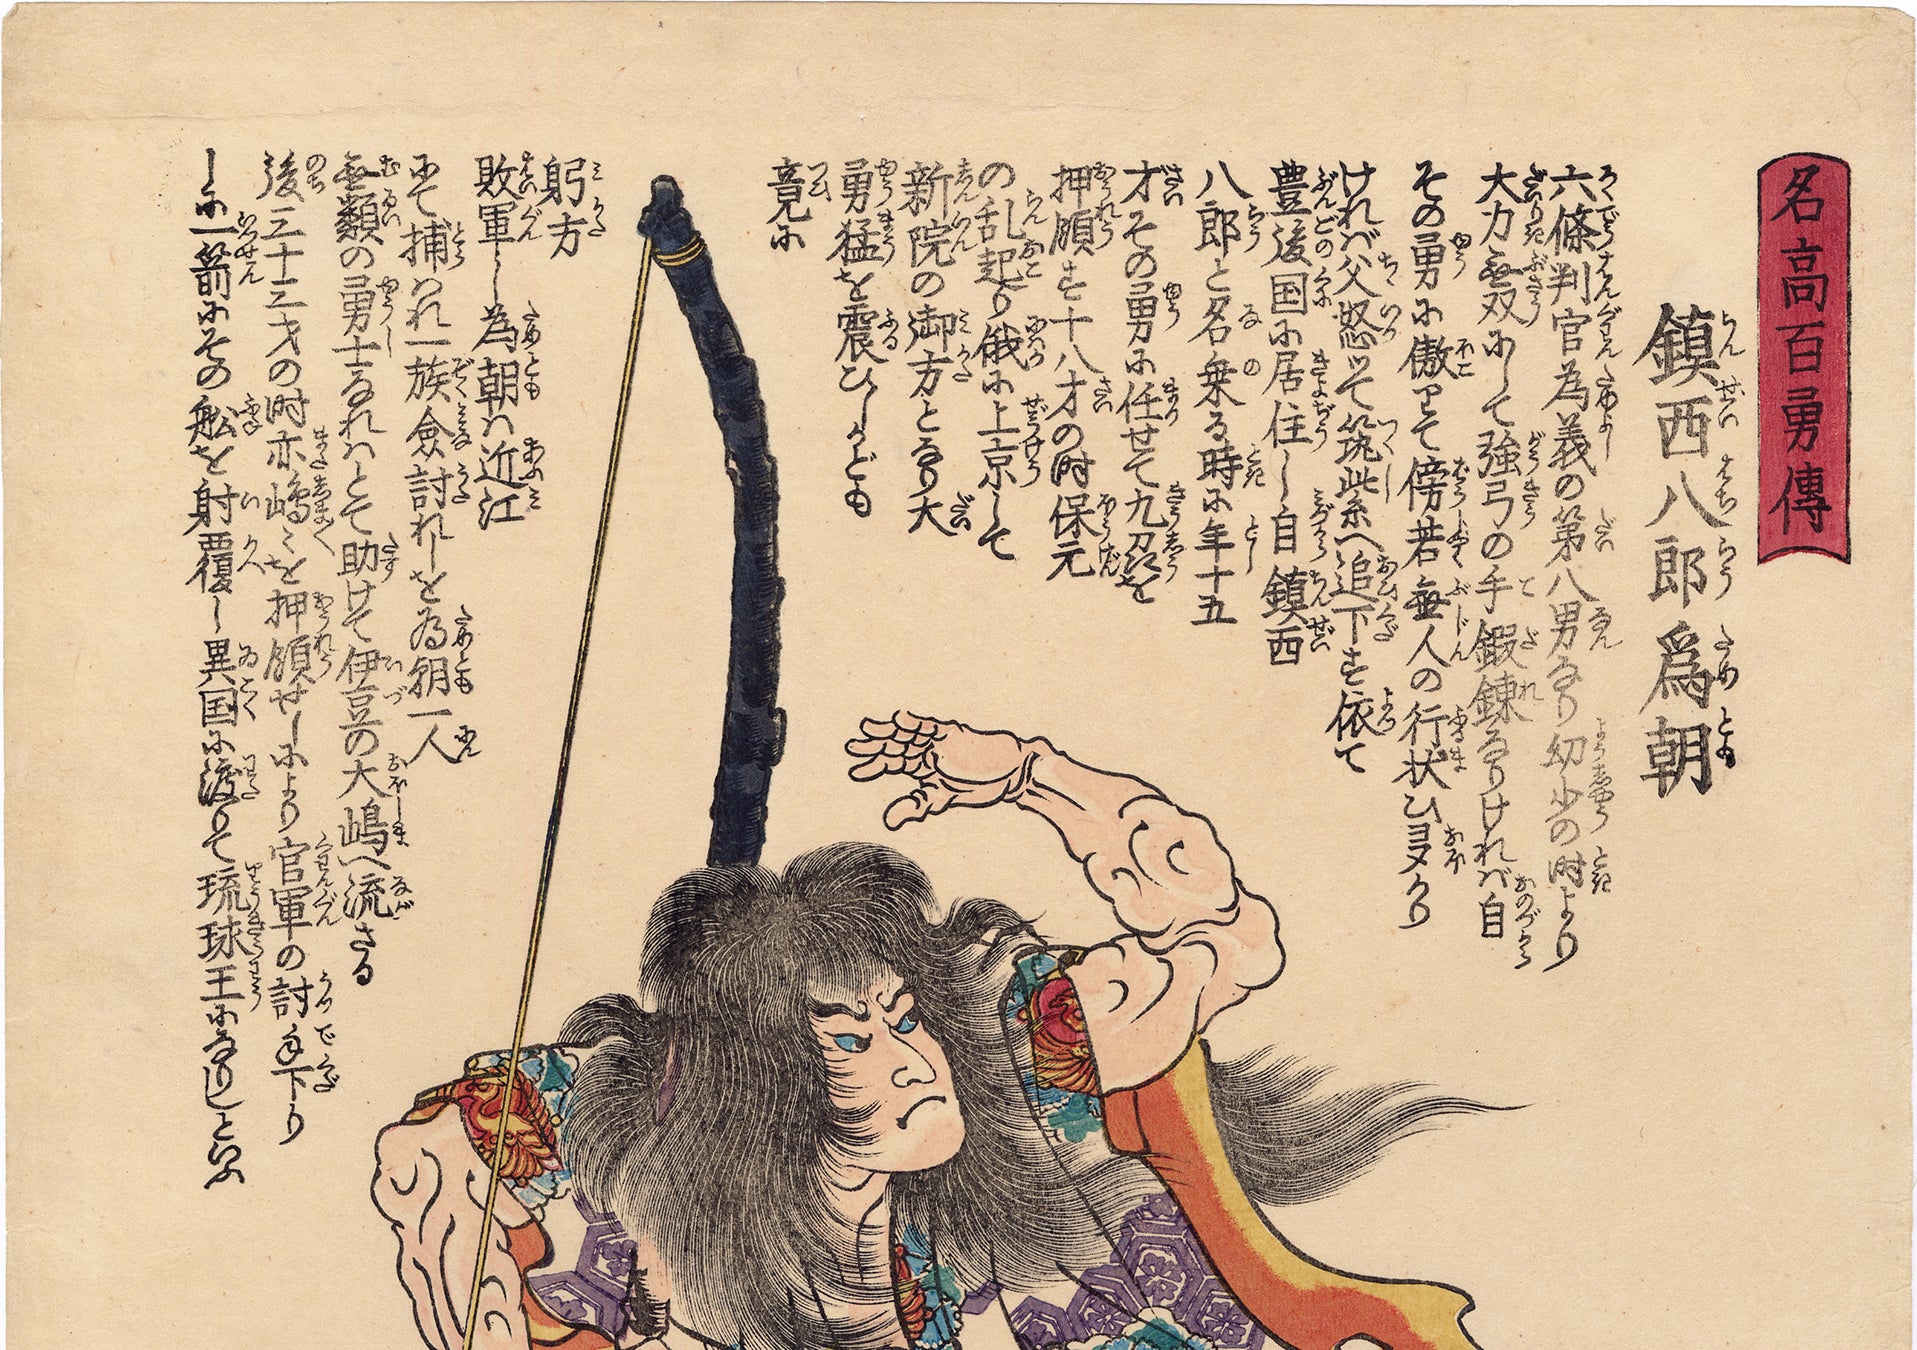 名高百勇傳
鎮西八郎爲朝
六條判官為義の第八男なり幼少の時より
大力無双にして強弓の手鍛錬なりければ自
その勇に傲りて傍若無人の行状ひ多かり
ければ父怒つて筑紫へ追下す依て
豊後国に居住し自鎮西
八郎と名乗る時に年十五
才その勇に任せて九州を
押領す十八才の時保元
の乱起り俄に上京して
新院の御方となり大
勇猛を震ひしかども
竟に
躬方
敗軍し為朝ハ近江
にて捕ハれ一族僉討れしを為朝一人
無類の勇士なれハとて助けて伊豆の大嶋へ流さる
後三十三才の時亦嶋〻を押領せしにより官軍の討手下り
しに一箭にその舩を射覆し異国に渡りて琉球王になりしといふ